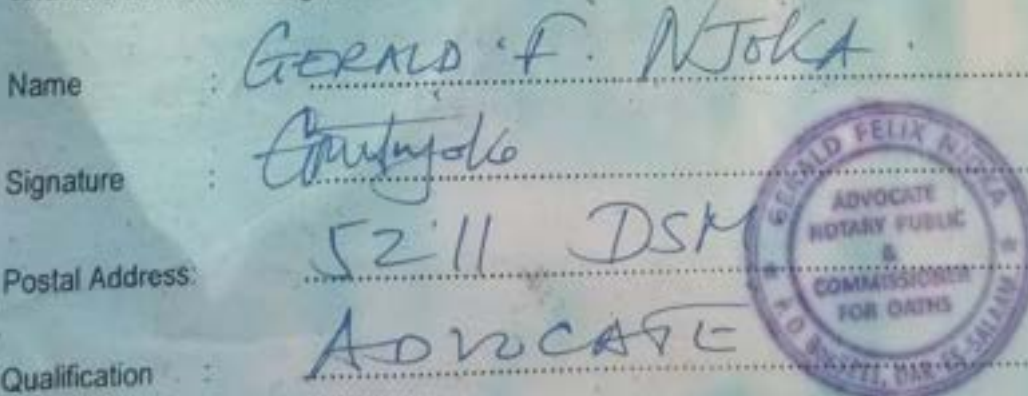 Name : GERALD F. NJOKA.
Signature :
Postal Address: 5211 DSM
Qualification : ADVOCATE
GERALD FELIX NJOKA
ADVOCATE
NOTARY PUBLIC
&
COMMISSIONER
FOR OATHS
P.O. DAR-ES-SALAAM